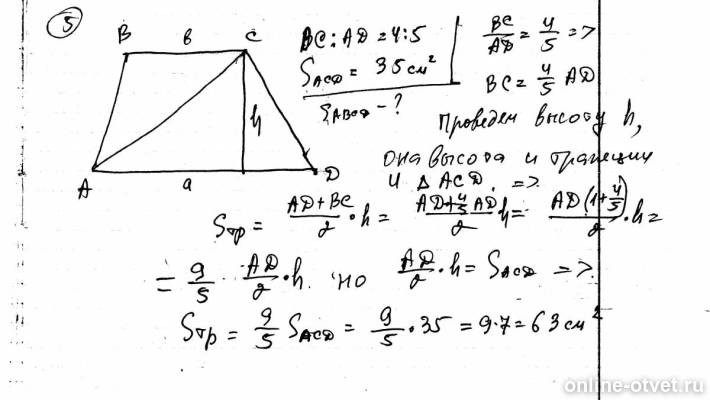 5
B в C
A a D
h
BC : AD = 4 : 5
S_ACD = 35 см²
S_ABCD - ?
BC/AD = 4/5 =>
BC = 4/5 AD
Проведем высоту h,
она высота и трапеции
и △ ACD. =>.
Sтр = (AD+BC)/2 · h = (AD+4/5 AD)/2 · h = AD(1+4/5)/2 · h =
= 9/5 · AD/2 · h. но AD/2 · h = S_ACD =>.
Sтр = 9/5 S_ACD = 9/5 · 35 = 9·7 = 63 см²
online-otvet.ru